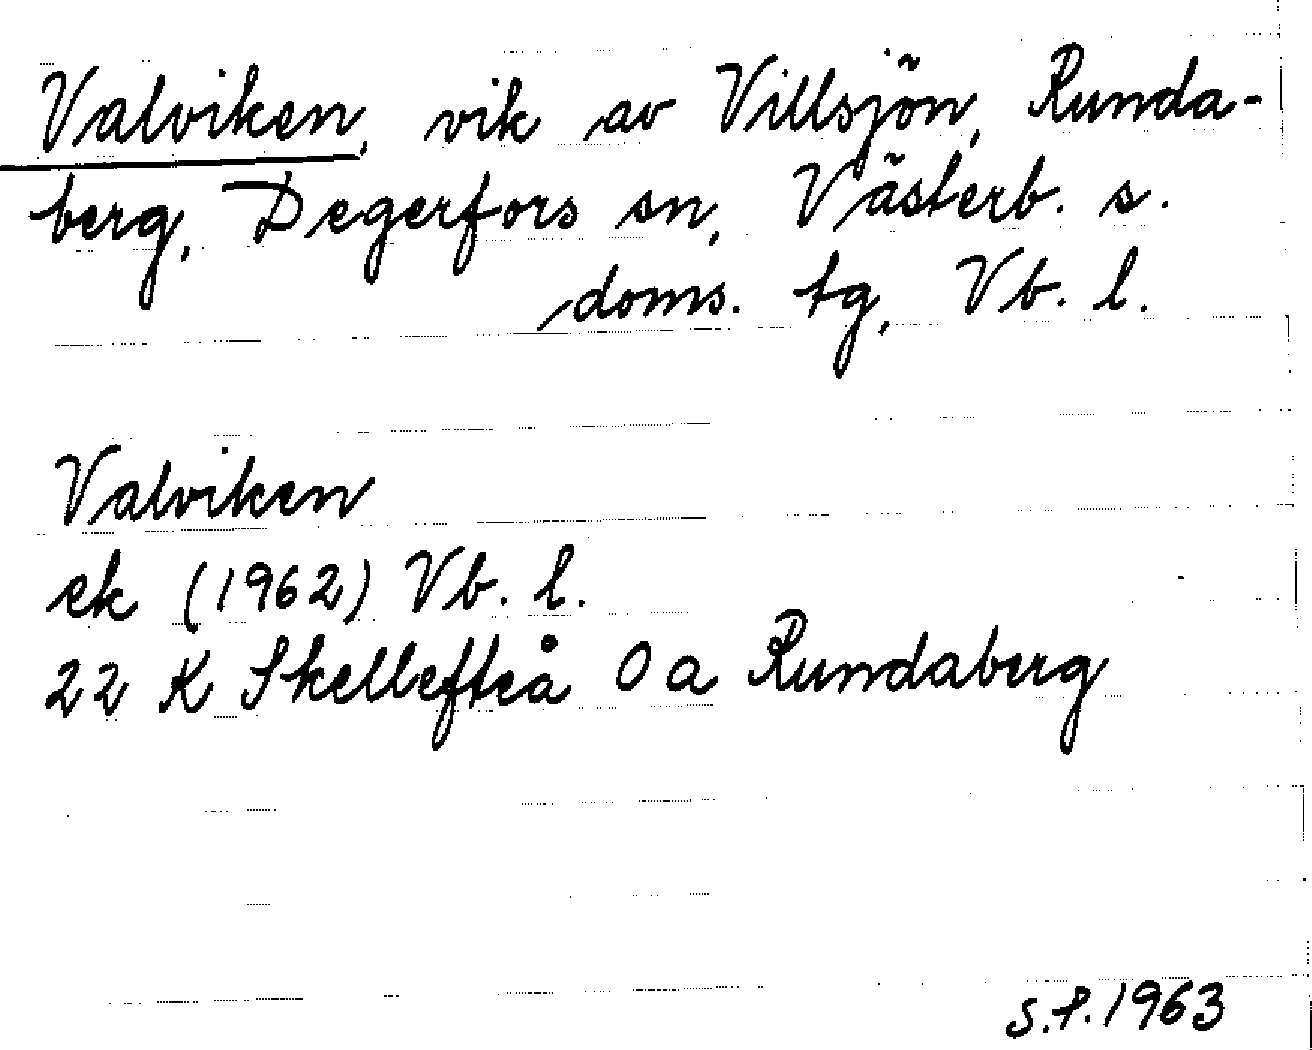 Valviken, vik av Villsjön, Runda-
berg, Degerfors sn, Västerb. s.
doms. tg, Vb. l.
Valviken
ek (1962) Vb. l.
22 K Skellefteå 0 a Rundaberg
s.f. 1963